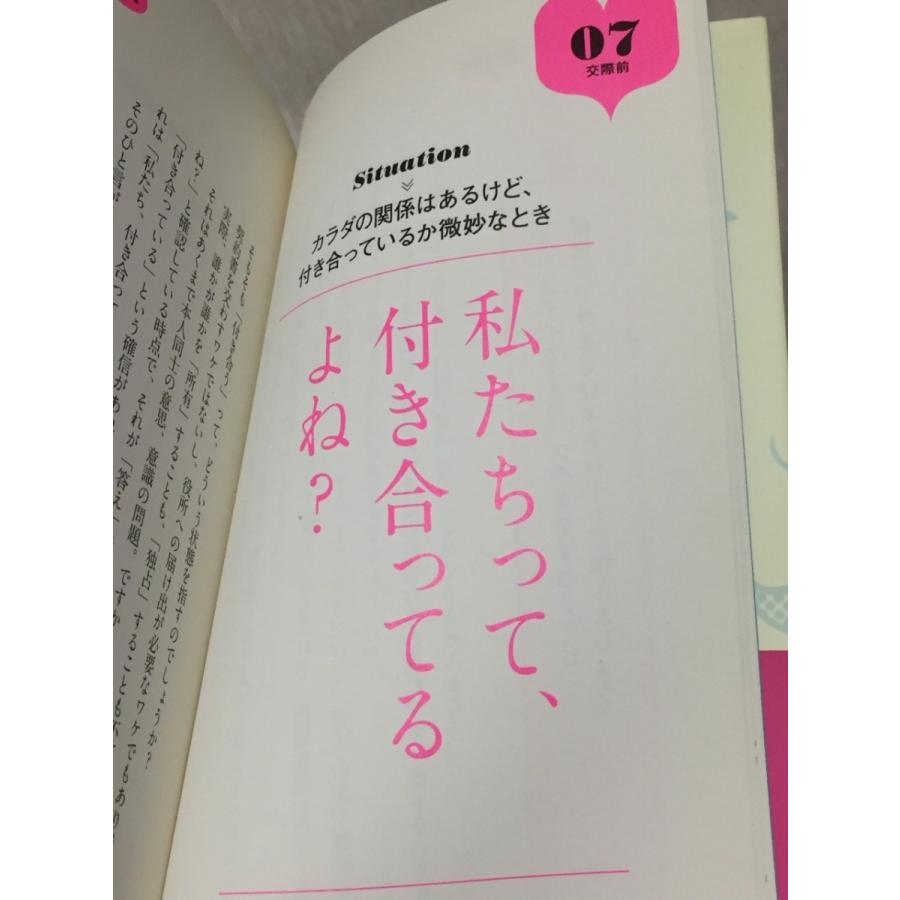 07
交際前
Situation
カラダの関係はあるけど、
付き合っているか微妙なとき
私たちって、
付き合ってる
よね？
そもそも「付き合う」って、どういう状態を指すのでしょうか？
契約書を交わすワケではないし、役所への届け出が必要なワケでもあり
実際、誰かが誰かを「所有」することも、「独占」することも
それはあくまで本人同士の意思、意識の問題。ですか
ね？」と確認している時点で、それが「答え」
「付き合っている」という確信があ
れは「私たち、付き合って
そのひと言が